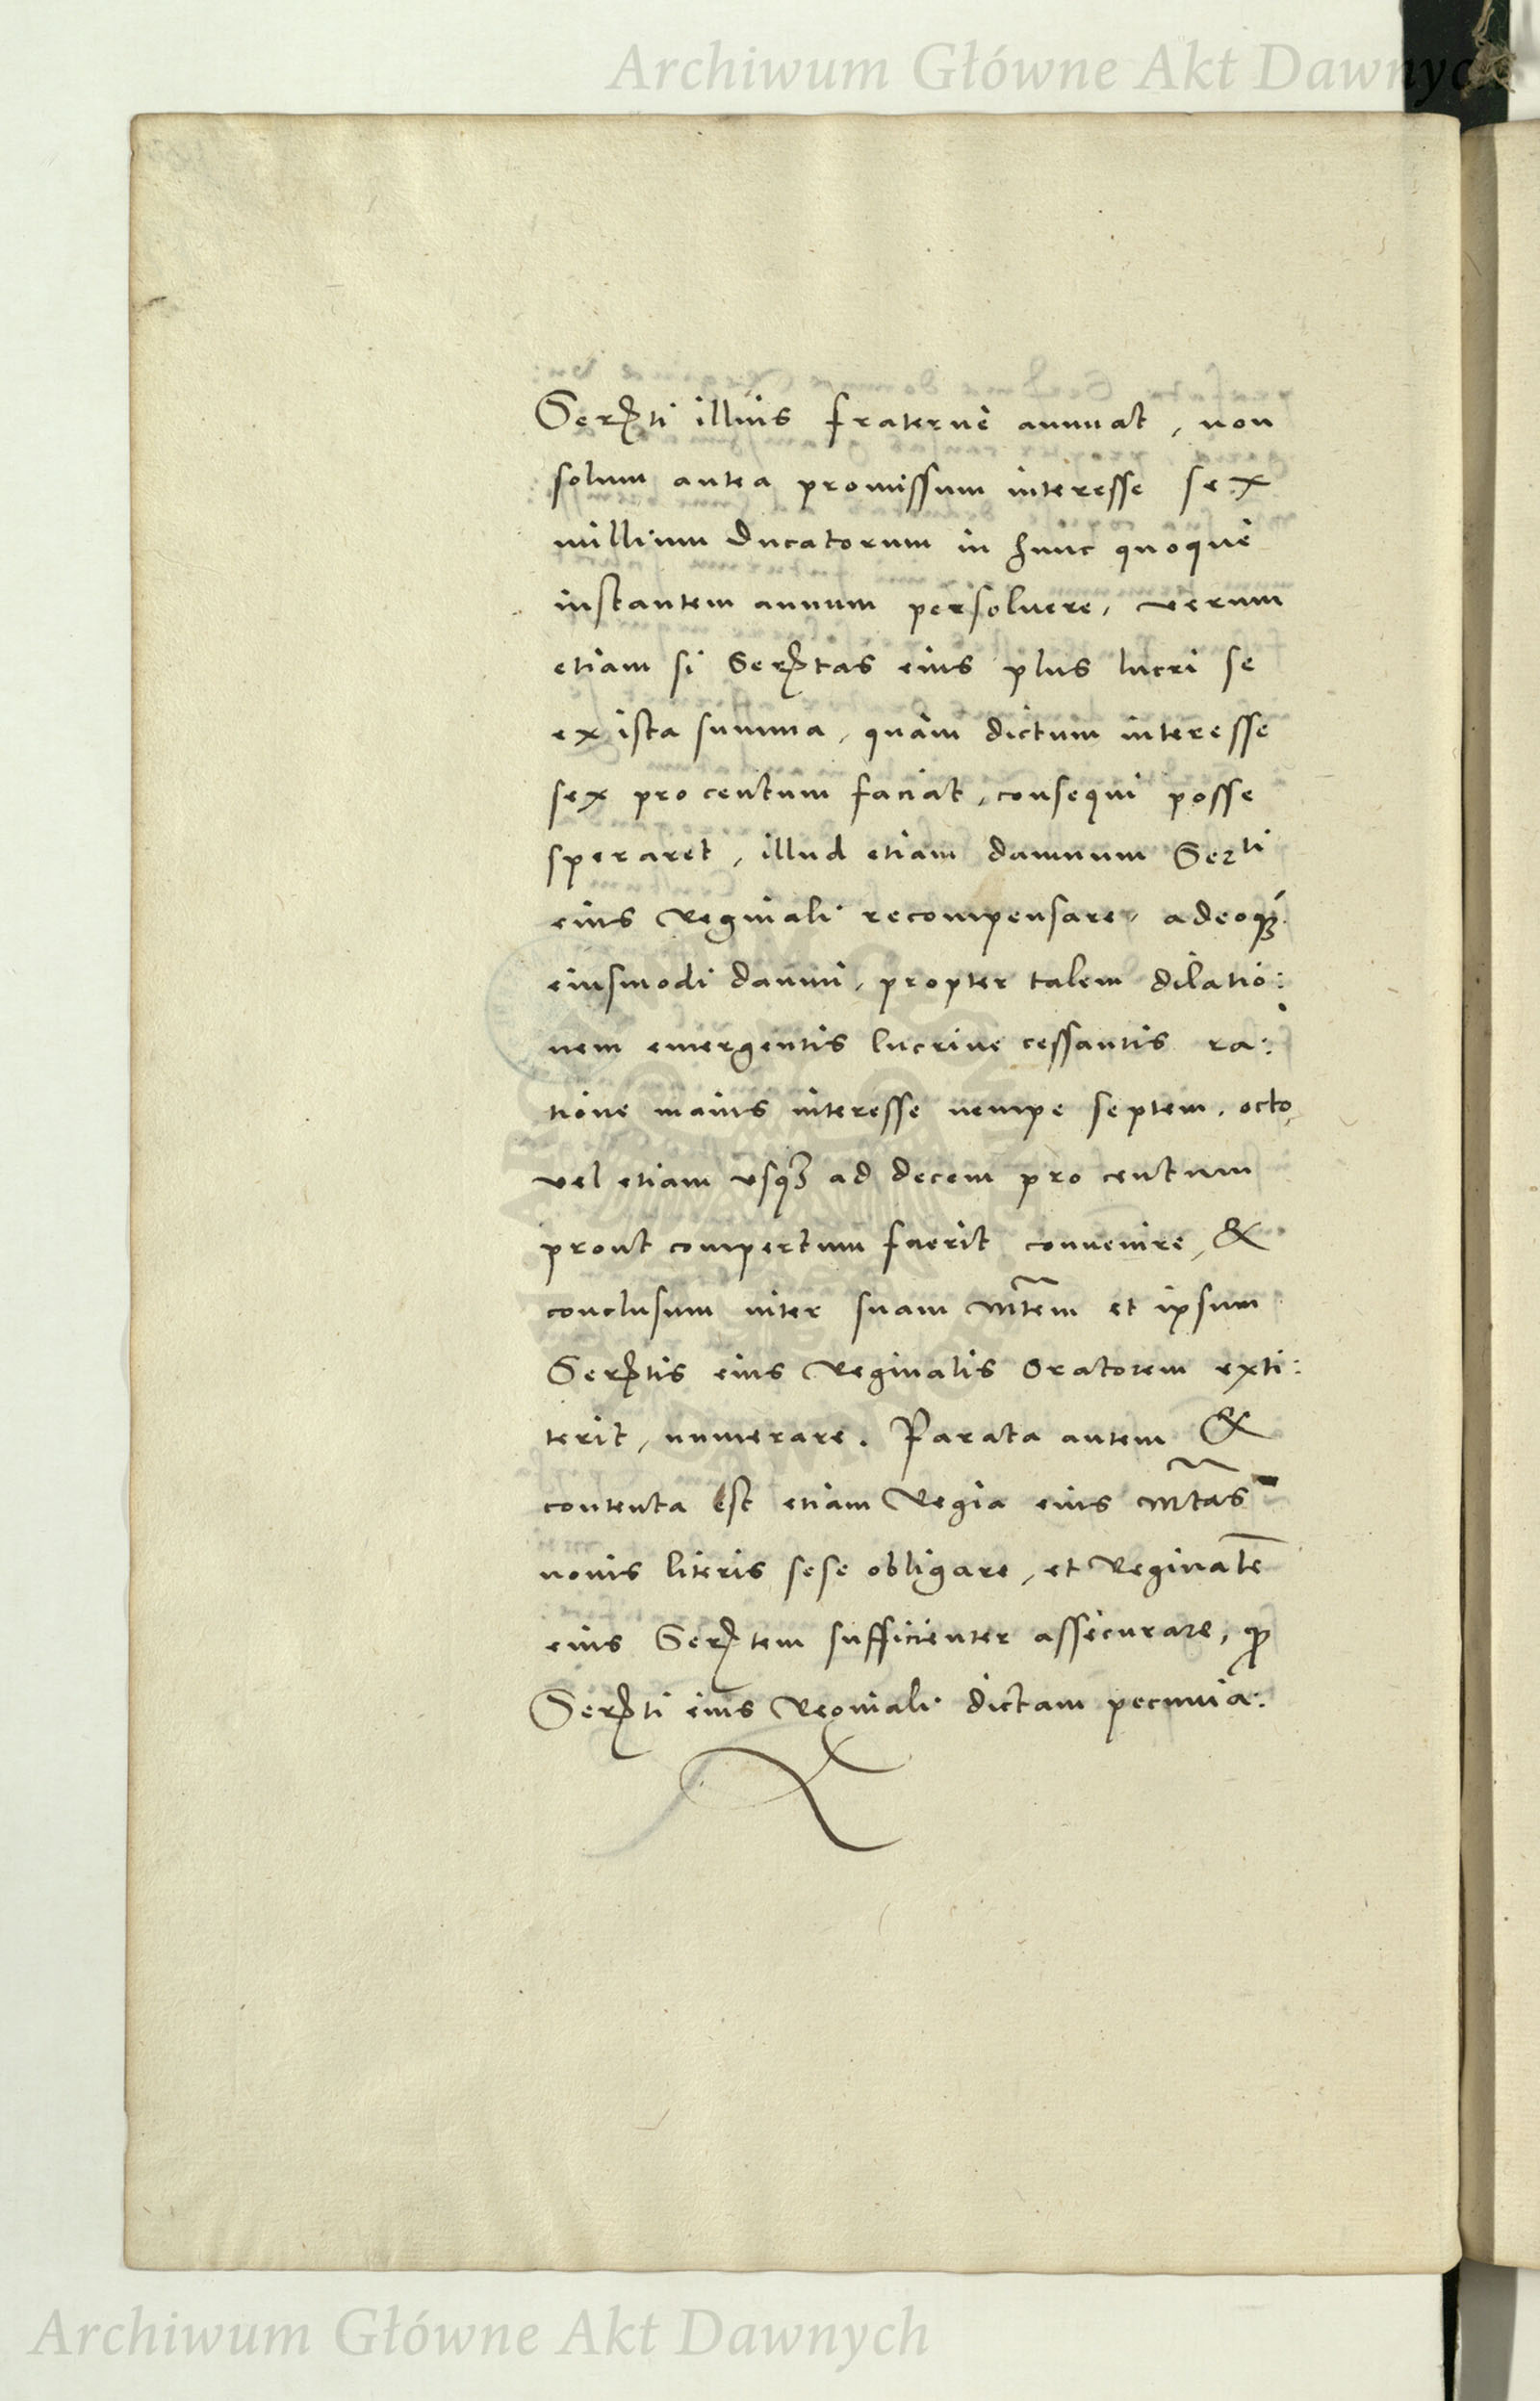 Archiwum Główne Akt Dawnych
Serᵗⁱ illius fraterne annuat, non
solum antea promissum interesse sex
millium Ducatorum in hunc quoque
instantem annum persoluere, verum
etiam si Serᵗas eius plus lucri se
ex ista summa, quàm dictum interesse
sex pro centum faciat, consequi posse
speraret, illud etiam damnum Serᵗⁱ
eius Reginali recompensare, adeoqꝫ
eiusmodi damni, propter talem dilatio:
nem emergentis lucrive cessantis ra:
tione maius interesse nempe septem, octo,
vel etiam vsqꝫ ad decem pro centum
prout compertum fuerit conuenire, &
conclusum inter suam Mᵗem et ipsum
Serᵗis eius Reginalis Oratorem exti:
terit, numerare. Parata autem &
contenta est etiam Regia eius Mᵗas
nouis literis sese obligare, et Reginalē
eius Serᵗem sufficienter assecurare, ꝙ
Serᵗⁱ eius Reginali dictam pecunia:
Archiwum Główne Akt Dawnych